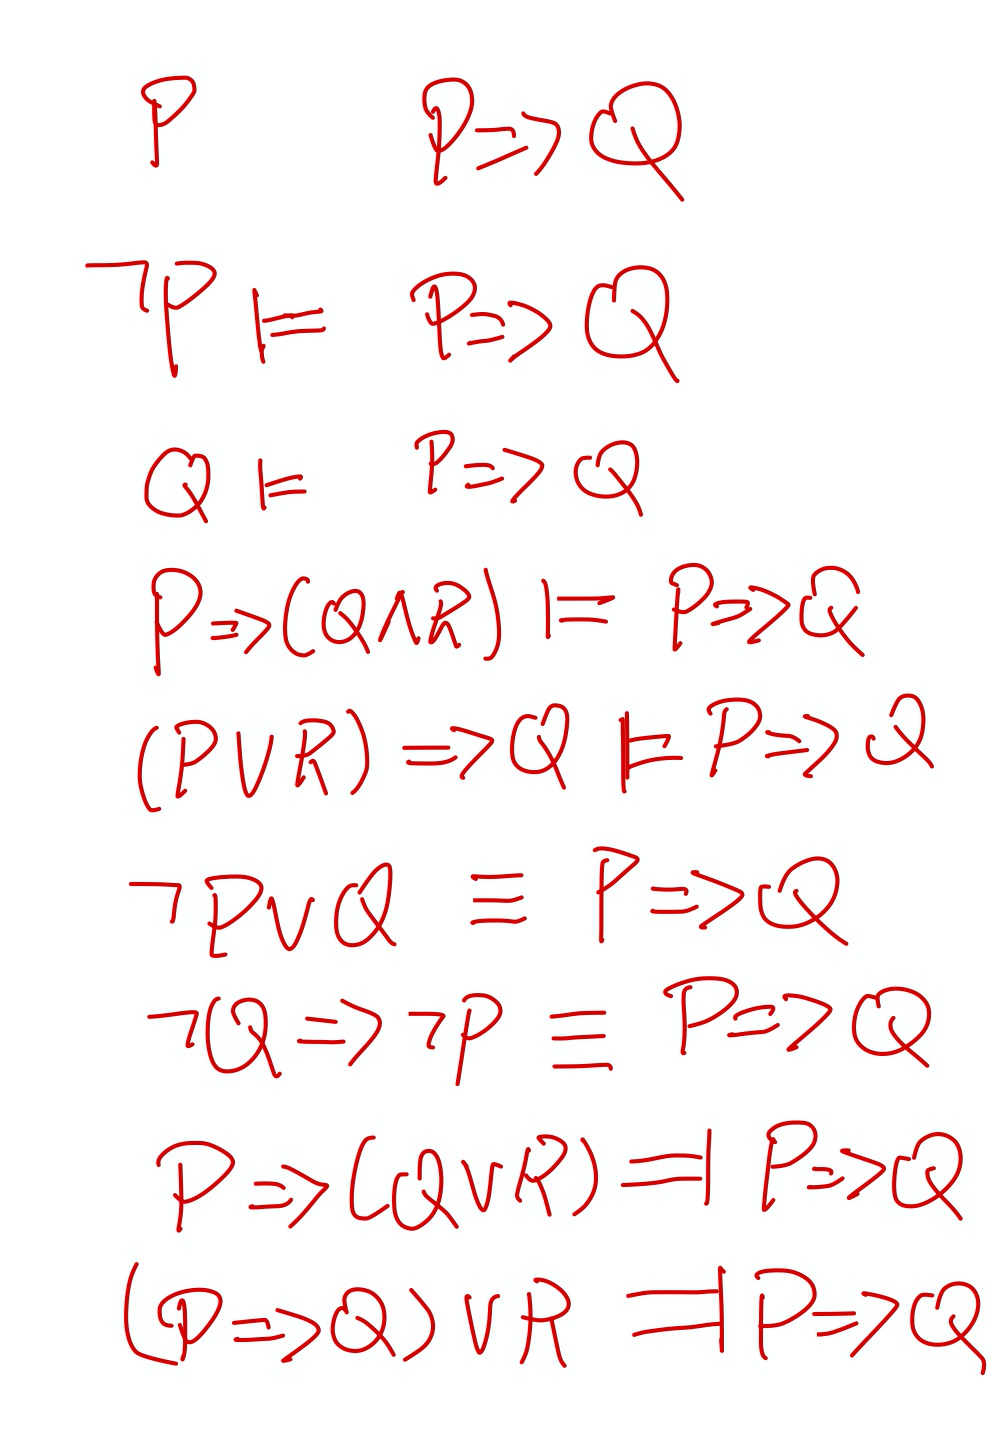 P P => Q
¬P ⊨ P => Q
Q ⊨ P => Q
P => (Q ∧ R) ⊨ P => Q
(P ∨ R) => Q ⊨ P => Q
¬P ∨ Q ≡ P => Q
¬Q => ¬P ≡ P => Q
P => (Q ∨ R) ⫤ P => Q
(P => Q) ∨ R ⫤ P => Q